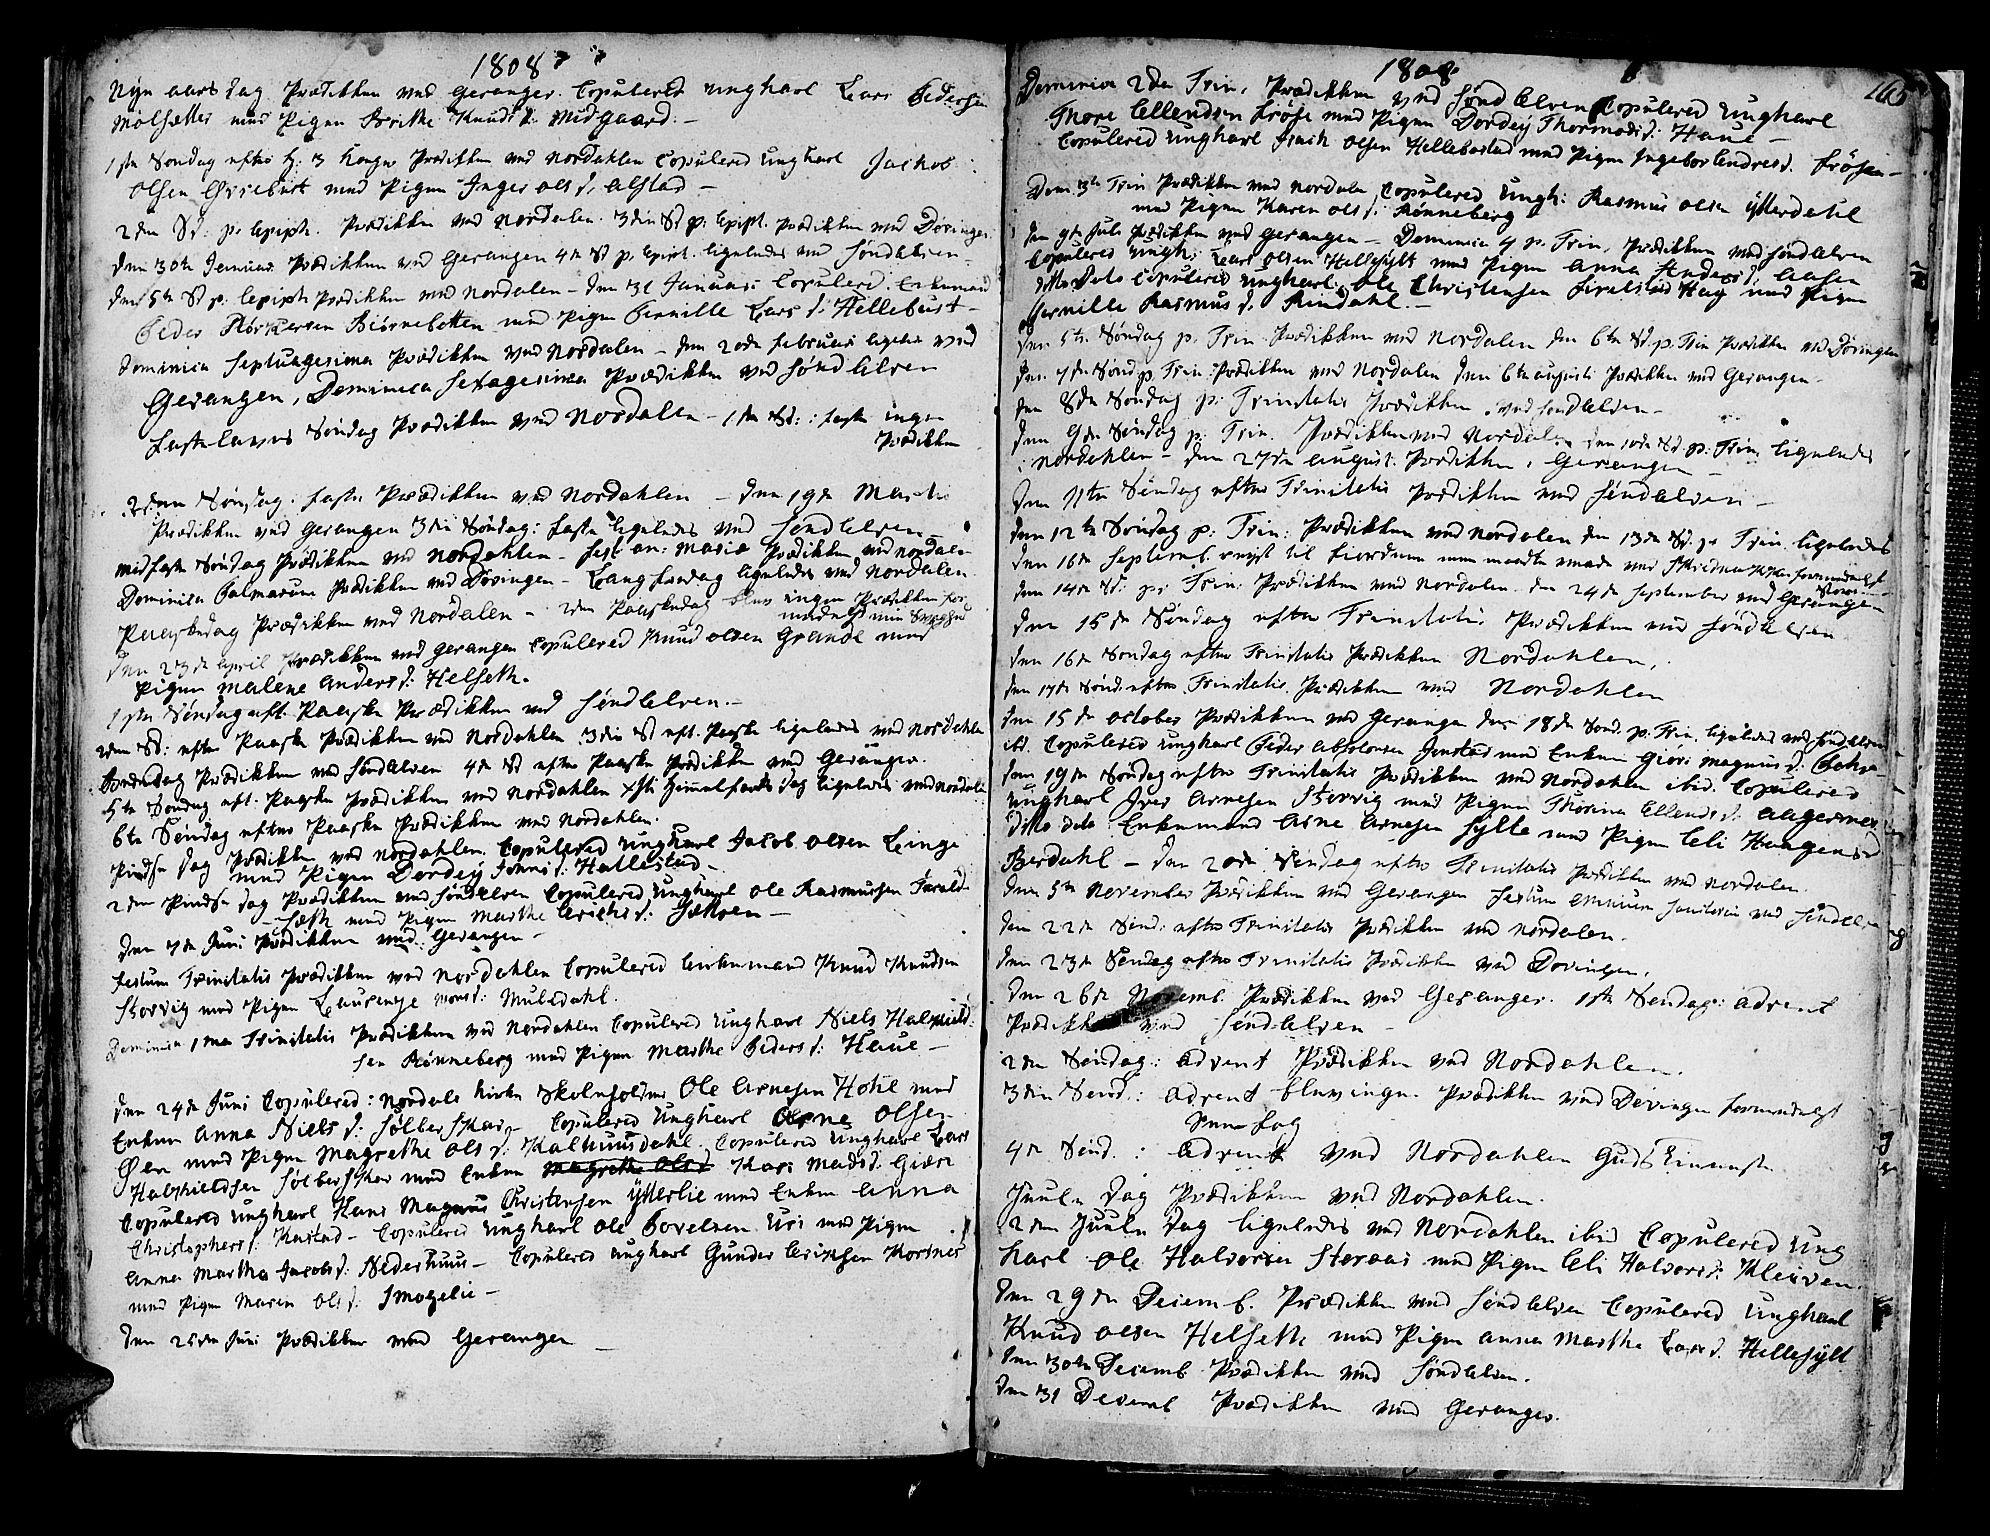 1808
Nyn aars dag Prædikken ved Geranger. Copulered ungkarl Lars Pedersen
Molsætter med Pigen Brithe Knuds d. Midgaard. -
1ste Søndag efter h. 3 Konger Prædikken ved Nordahlen Copulered ungkarl Jachob
Olsen Ørsebust med Pigen Inger Ols d. Alstad -
2den Sd: p. Epiph. Prædikken ved Nordalen. 3die Sd p. Epiph. Prædikken ved Døvingen
den 30te Januar. Prædikken ved Gerangen 4de Sd p. Epiph. ligeledes ved Søndelven -
den 5te Sd p. Epiph Prædikken ved Nordalen - den 31 Januari Copulered Enkemand
Peder Biørnebotten med Pigen Pernille Lars d. Hellebust -
Dominica Septuagesima Prædikken ved Nordalen - den 20de Februari ved
Gerangen, Dominica Sexagesima Prædikken ved Søndelven
Fastelavns Søndag Prædikken ved Nordalen - 1ste Sd: i faste ingen
Prædikken
2den Søndag i faste Prædikken ved Nordahlen - den 19de Martii
Prædikken ved Gerangen 3die Søndag i faste ligeledes ved Søndelven
Midfaste Søndag Prædikken ved Nordahlen - Fest an: Mariæ Prædikken ved Nordalen
Dominica Palmarum Prædikken ved Døvingen - Langfredag ligeledes ved Nordalen
Paaskedag Prædikken ved Nordalen - 2den Paaskedag blev ingen Prædikken for-
medelst min Svaghed
Den 23de April Prædikken ved Gerangen Copulered Knud Olsen Grande med
Pigen Malene Anders d: Helseth.
1ste Søndag eft. Paaske Prædikken ved Søndelven. -
2den Sd: efter Paaske Prædikken ved Nordahlen 3die Sd eft. Paaske ligeledes ved Nordahlen
Prædikken ved Søndelven 4de Sd efter Paaske Prædikken ved Geranger.
5te Søndag eft. Paaske Prædikken ved Nordahlen Chri Himmelfarts dag ligeledes ved Nordalen
6te Søndag efter Paaske Prædikken ved Nordahlen.
Pindse dag Prædikken ved Nordahlen. Copulered ungkarl Jacob Olsen Linge
med Pigen Dordej d. Hallestad -
2den Pindse dag Prædikken ved Søndelven Copulered ungkarl Ole Rasmusen
med Pigen Marthe Erichs d: -
Den 7de Juni Prædikken ved Gerangen -
Festum Trinitatis Prædikken ved Nordahlen Copulered Enkemand Knud Knudsen
Storvig med Pigen Laurentze d: Muldahl.
Dominica 1ma Trinitatis Prædikken ved Nordahlen Copulered ungkarl Niels Halkield
sen Rønneberg med Pigen Marthe Peders d: Haue -
Den 24de Juni Copulered i Nordals Kirke Skoleholder Ole Arnesen Hohl med
Enken Anna Niels d: Sølberskar - Copulered ungkarl Arne Olsen
Øen med Pigen Magrethe Ols d. Kalhuusdahl. Copulered ungkarl Lars
Halkieldsen Sølberskar med Enken Magrethe Ols d Kari Mads d. Giære
Copulered ungkarl Hans Magnus Christensen Ytterlie med Enken Anna
Christophers d: Kastad - Copulered ungkarl Ole Povelsen Uri med Pigen
Anna Martha Jacobs d: Nederhuus - Copulered ungkarl Gunder Erichsen Korsnes
med Pigen Maren Ols d: Smogelie -
Den 25de Juni Prædikken ved Gerangen
1808
165
Dominica 2den Trin. Prædikken ved Søndelven Copulered ungkarl
Thore Ellendsen Frøse med Pigen Dordej Thormods d: Haue -
Copulered ungkarl Olsen Hellebostad med Pigen Ingebor Endres d. Frøsen -
Dom. 3de Trin Prædikken ved Nordalen Copulered Ungk: Rasmus Olsen Ytterdahl
med Pigen Karen Ols d. Rønneberg
den 9de Juli Prædikken ved Gerangen - Dominica 4 p. Trin. Prædikken ved Søndelven
Copulered Ungk: Lars Olsen Hellesylt med Pigen Anna Anders d: Aasen
ditto dato Copulered ungkarl. Ole Christensen med Pigen
Pernille Rasmus d. Rindahl. -
den 5te Søndag p. Trin. Prædikken ved Nordalen den 6te Sd. p. Trin Prædikken ved Døvingen
den 7de Sønd p. Trin. Prædikken ved Nordalen den 6te Augusti Prædikken ved Gerangen -
den 8de Søndag p: Trinitatis Prædikken ved Søndelven -
den 9de Søndag p: Trin. Prædikken ved Nordalen den 10de Sd. p: Trin. ligeledes
i Nordahlen - den 27de August. Prædikken i Gerangen -
den 11te Søndag efter Trinitatis Prædikken ved Søndelven -
den 12te Søndag p: Trin: Prædikken ved Nordalen den 13de Sd. p: Trin. ligeledes
den 16de Septemb. reyst til men maatte vende ved formedelst
Storm
den 14de Sd: p: Trin: Prædikken ved Nordalen. den 24de September ved Gerangen
den 15de Søndag efter Trinitatis Prædikken ved Søndelven
den 16de Søndag efter Trinitatis Prædikken Nordahlen,
den 17de Sønd: efter Trinitatis Prædikken ved Nordahlen
den 15de October Prædikken ved Geranger den 18de Sønd. p: Trin. ligeledes ved Søndelven
ibd. Copulered ungkarl Peder Absolonsen med Enken Giøri Magnus d.
den 19de Søndag efter Trinitatis Prædikken ved Nordahlen ibid. Copulered
ungkarl Iver Arnesen Storvig med Pigen Thorina Ellends d:
ditto dato: Enkemand Arne Arnesen Sylte med Pigen Eli
Berdahl - den 20de Søndag efter Trinitatis Prædikken ved Nordalen.
den 5te November Prædikken ved Gerangen Festum Omnium Sanctorum ved Søndelven
den 22de Sønd: efter Trinitatis Prædikken ved Nordalen.
den 23de Søndag efter Trinitatis Prædikken ved Dovingen.
den 26de Novemb. Prædikken ved Geranger. 1ste Søndag i Advent
Prædikken ved Søndelven -
2den Søndag i Advent Prædikken ved Nordahlen.
3die Sønd: i Advent blev ingen Prædikken ved Døvingen formedelst
4de Sønd. i Advent ved Nordahlen Gudstieneste
Juule dag Prædikken ved Nordahlen.
2den Juule dag ligeledes ved Nordahlen ibid Copulered Ung
karl Ole Halvorsen Storaas med Pigen Eli Halvors d: Kleiven.
Den 29de Decemb. Prædikken ved Søndelven Copulered ungkarl
Knud Olsen Helseth med Pigen Anna Marthe Lars d. Hellesylt
den 30te Decemb Prædikken ved Søndelven.
den 31 Decemb Prædikken ved Geranger.